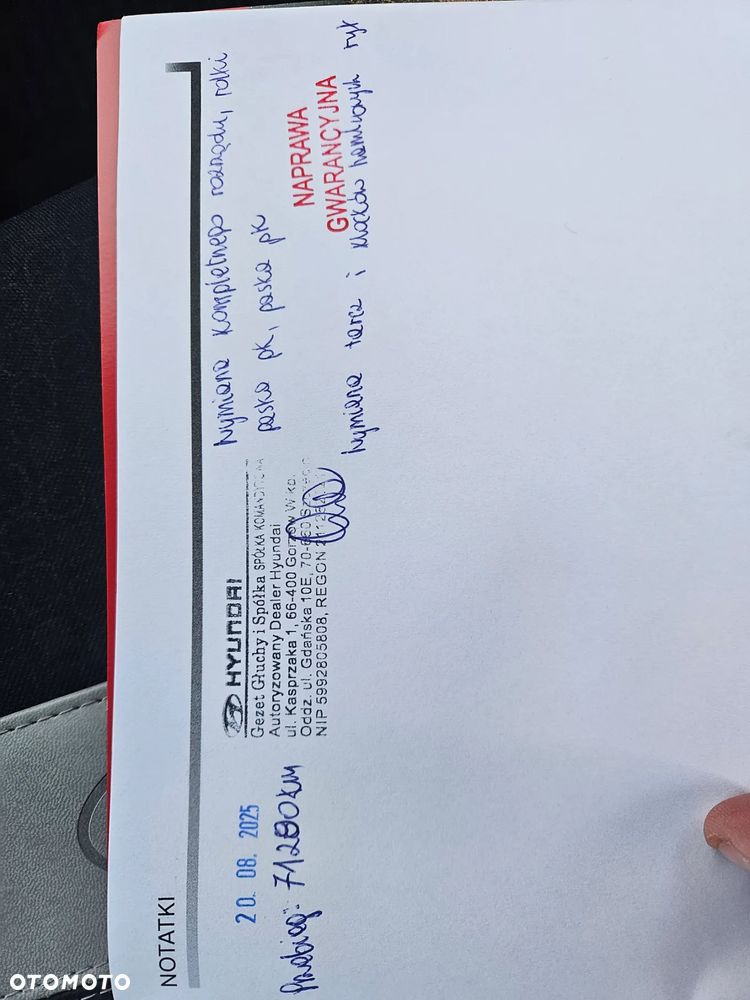 NOTATKI
20. 08. 2025
Przebieg: 71200km
HYUNDAI
Gezet Głuchy i Spółka SPÓŁKA KOMANDYTOWA
Autoryzowany Dealer Hyundai
ul. Kasprzaka 1, 66-400 Gorzów Wlkp.
Oddz. ul. Gdańska 10E, 70-660 Szczecin
NIP 5992805808, REGON
Wymiana kompletnego rozrządu, rolki
paska pk, paska pk
NAPRAWA
GWARANCYJNA
Wymiana tarcz i klocków hamulcowych tył
OTOMOTO